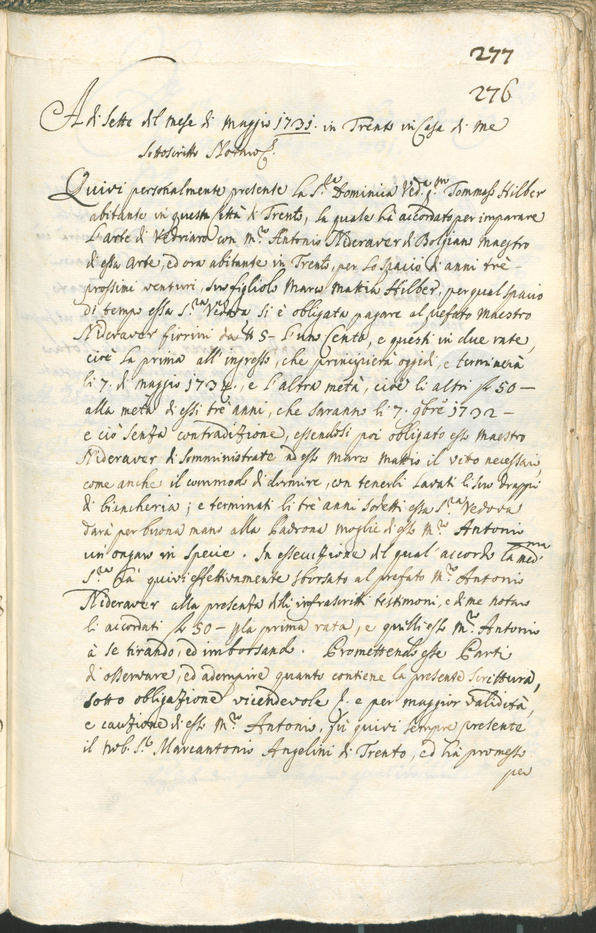 277
276
A di Sette del mese di Maggio 1731. in Trento in Casa di me
Sottoscritto Notaro
Quivi personalmente presente la S.ra Dominica Ved.a Tommaso Hilber
abitante in questa Città di Trento, la quale hà accordato per imparare
L'arte di Vedriaro con m.ro Antonio Nideraver di Bolgian maestro
di essa arte, ed ora abitante in Trento, per lo spacio di anni trè
prossimi venturi, suo figliolo Marco Mattia Hilber, per qual spacio
di tempo essa S.ra Vedova si è obligata pagare al prefato maestro
Nideraver fiorini da 5 l'uno Cento, e questi in due rate,
cioè la prima all'ingresso, che principierà oggidì, e terminerà
li 7. di maggio 1734., e l'altra metà, cioè li altri f 50 —
alla metà di essi trè anni, che saranno li 7. 9bre 1732 —
e ciò senza contradizione, essendosi poi obligato esso maestro
Nideraver di somministrate ad esso Marco Mattio il vito necessario,
come anche il commodo di dormire, con tenerli lavati li suoi drappi
di biancheria; e terminati li trè anni sodetti essa S.ra Vedova
darà per buona mano alla Padrona moglie di esso m.ro Antonio
un ongaro in specie. In essecuzione del qual accordo la med.ma
S.ra hà quivi effettivamente sborsato al prefato m.ro Antonio
Nideraver alla presenza delli infrascritti testimoni, e di me notaro
li accordati f 50 — p la prima rata, e quelli esso m.ro Antonio
à se tirando, ed imborsando. Promettendo esse Parti
di osservare, ed adempire quanto contiene la presente scrittura,
sotto obligazione vicendevole e per maggior validità,
e cauzione di esso m.ro Antonio, fù quivi sempre presente
il nob. S.r Marcantonio Angelini di Trento, ed hà promesso
per